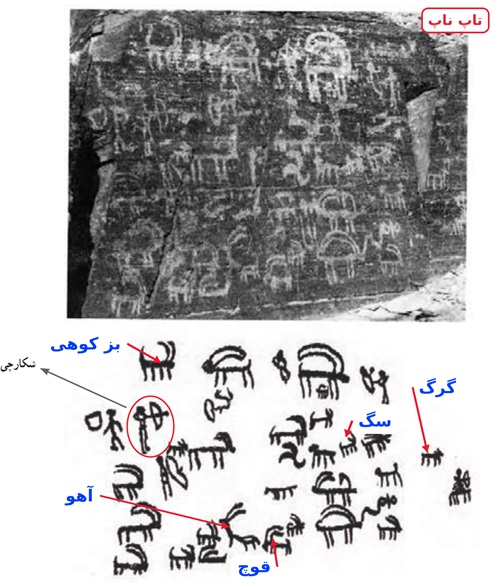 تاپ ناپ
بز کوهی
شکارچی
گرگ
سگ
آهو
قوچ